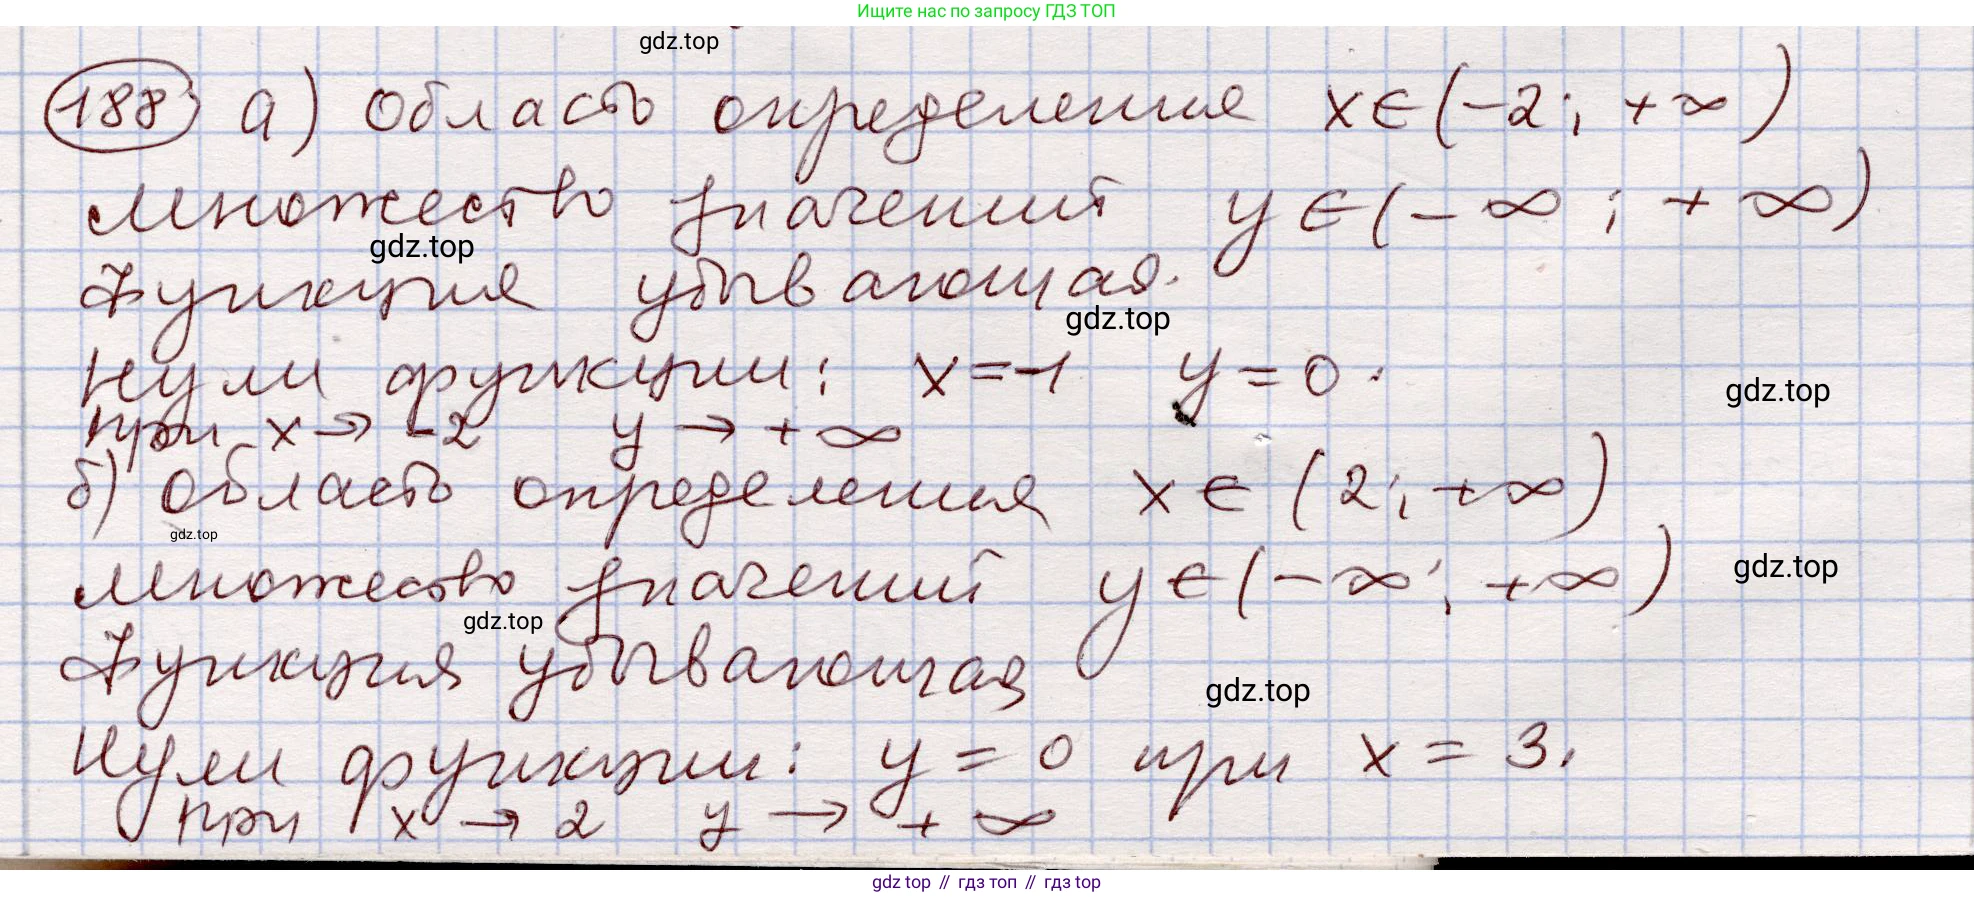 Ищите нас по запросу ГДЗ ТОП
gdz.top
188 а) Область определения x∈(-2; +∞)
Множество значений y∈(-∞; +∞)
gdz.top
Функция убывающая.
gdz.top
Нули функции: x=-1 y=0.
gdz.top
при x→ -2 y → +∞
б) Область определения x∈(2; +∞)
gdz.top
множество значений y∈(-∞; +∞)
gdz.top
gdz.top
Функция убывающая
gdz.top
Нули функции: y=0 при x=3.
при x → 2 y → +∞
gdz top // гдз топ // гдз top